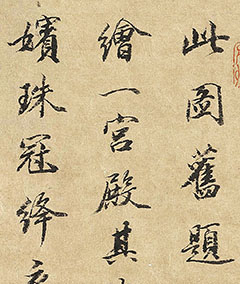 此圖舊題
繪一宮殿其
嬪珠冠絳